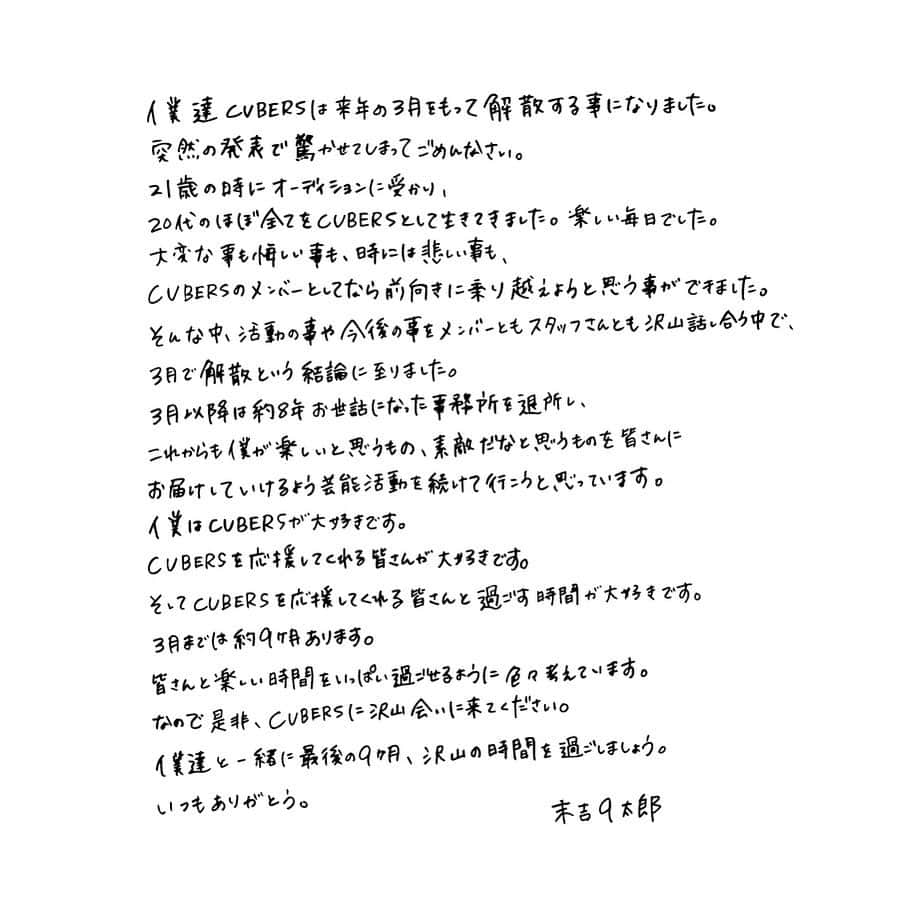 僕達CUBERSは来年の3月をもって解散する事になりました。
突然の発表で驚かせてしまってごめんなさい。
21歳の時にオーディションに受かり、
20代のほぼ全てをCUBERSとして生きてきました。楽しい毎日でした。
大変な事も悔しい事も、時には悲しい事も、
CUBERSのメンバーとしてなら前向きに乗り越えようと思う事ができました。
そんな中、活動の事や今後の事をメンバーともスタッフさんとも沢山話し合う中で、
3月で解散という結論に至りました。
3月以降は約8年お世話になった事務所を退所し、
これからも僕が楽しいと思うもの、素敵だなと思うものを皆さんに
お届けしていけるよう芸能活動を続けて行こうと思っています。
僕はCUBERSが大好きです。
CUBERSを応援してくれる皆さんが大好きです。
そしてCUBERSを応援してくれる皆さんと過ごす時間が大好きです。
3月までは約9ヶ月あります。
皆さんと楽しい時間をいっぱい過ごせるように色々考えています。
なので是非、CUBERSに沢山会いに来てください。
僕達と一緒に最後の9ヶ月、沢山の時間を過ごしましょう。
いつもありがとう。
末吉9太郎